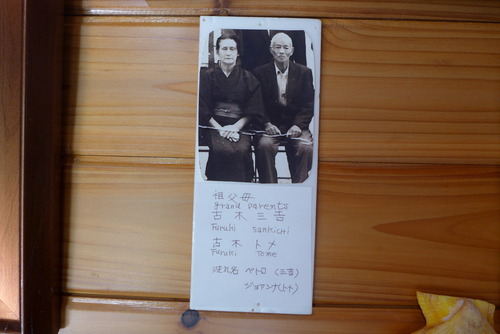 祖父母
grand parents
古木三吉
Furuki Sankichi
古木トメ
Furuki Tome
洗礼名 ペトロ (三吉)
ジョアンナ(トメ)